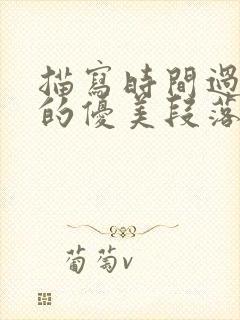 描寫時間過
的優美段落
葡萄v